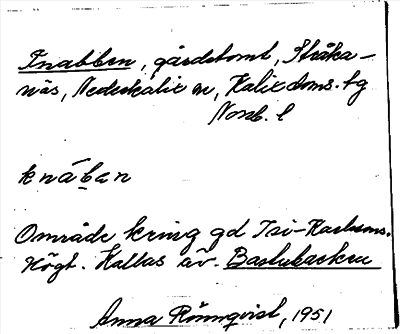 Knabben, gårdstomt, Stråka-
näs, Nederkalix sn, Kalix doms. tg
Norrb. l
knában
Område kring gd Isi-Karlsons.
Högt. Kallas äv. Bastubacken
Anna Rönnqvist, 1951